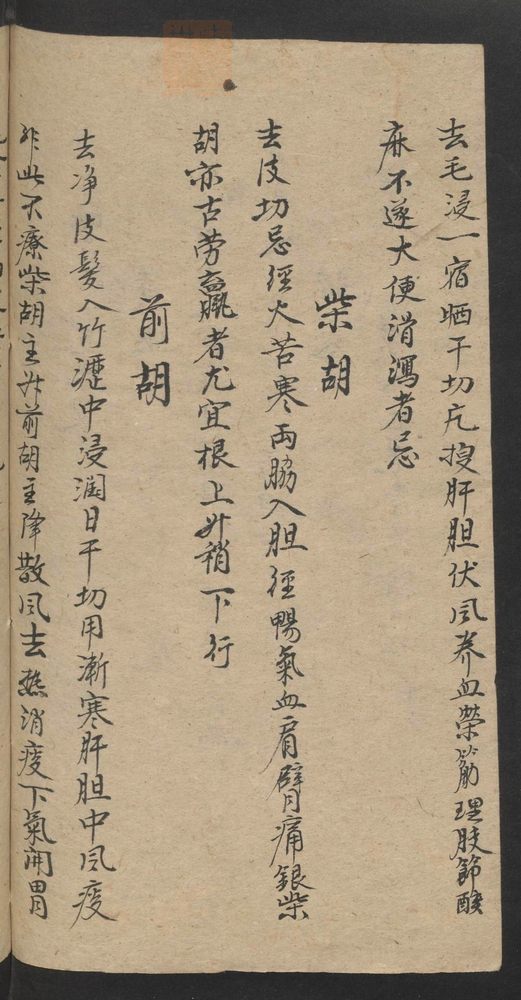 去毛浸一宿晒干切片搜肝胆伏风养血荣筋理肢節酸
麻不遂大便滑瀉者忌
柴胡
去皮切忌經火苦寒両脇入胆径暢氣血肩臂痛銀柴
胡亦古劳羸者尤宜根上升稍下行
前胡
去净皮髮入竹瀝中浸潤日干切用漸寒肝胆中风痰
非此不療柴胡主升前胡主降散风去熱消痰下氣開胃